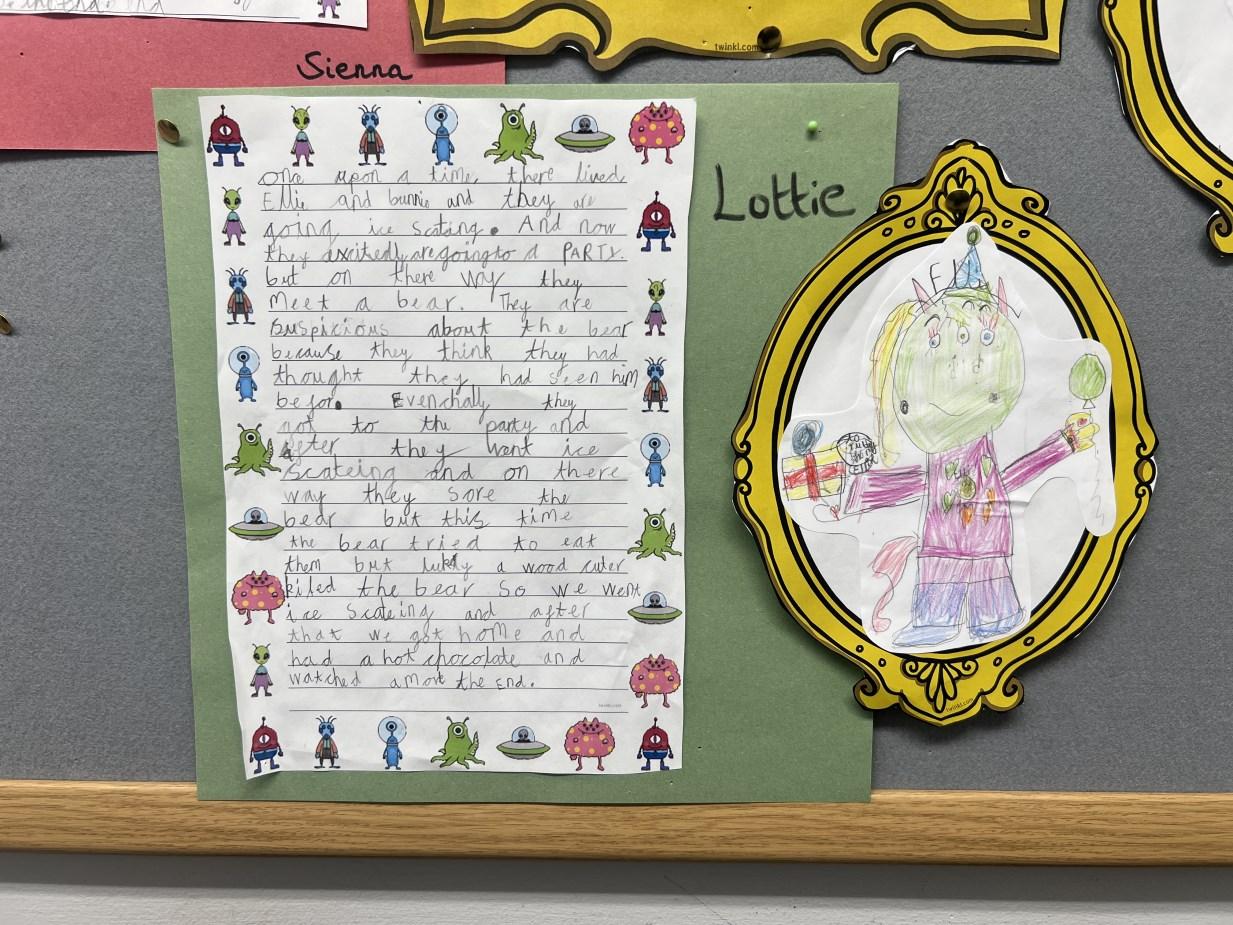 Sienna
twinkl.com
Lottie
once upon a time, there lived
Ellie and bunnie and they are
going ice scating. And now
they excitedly are going to a PARTY.
but on there wry they
Meet a bear. They are
suspicious about the bear
because they think they had
thought they had seen him
befor. Evenchally they
got to the party and
after they want ice
Scateing and on there
way they sore the
bear but this time
the bear tried to eat
them but lukly a wood cuter
killed the bear So we went
ice scateing and after
that we got home and
had a hot chocolate and
watched a the END.
twinkl.com
twinkl.com